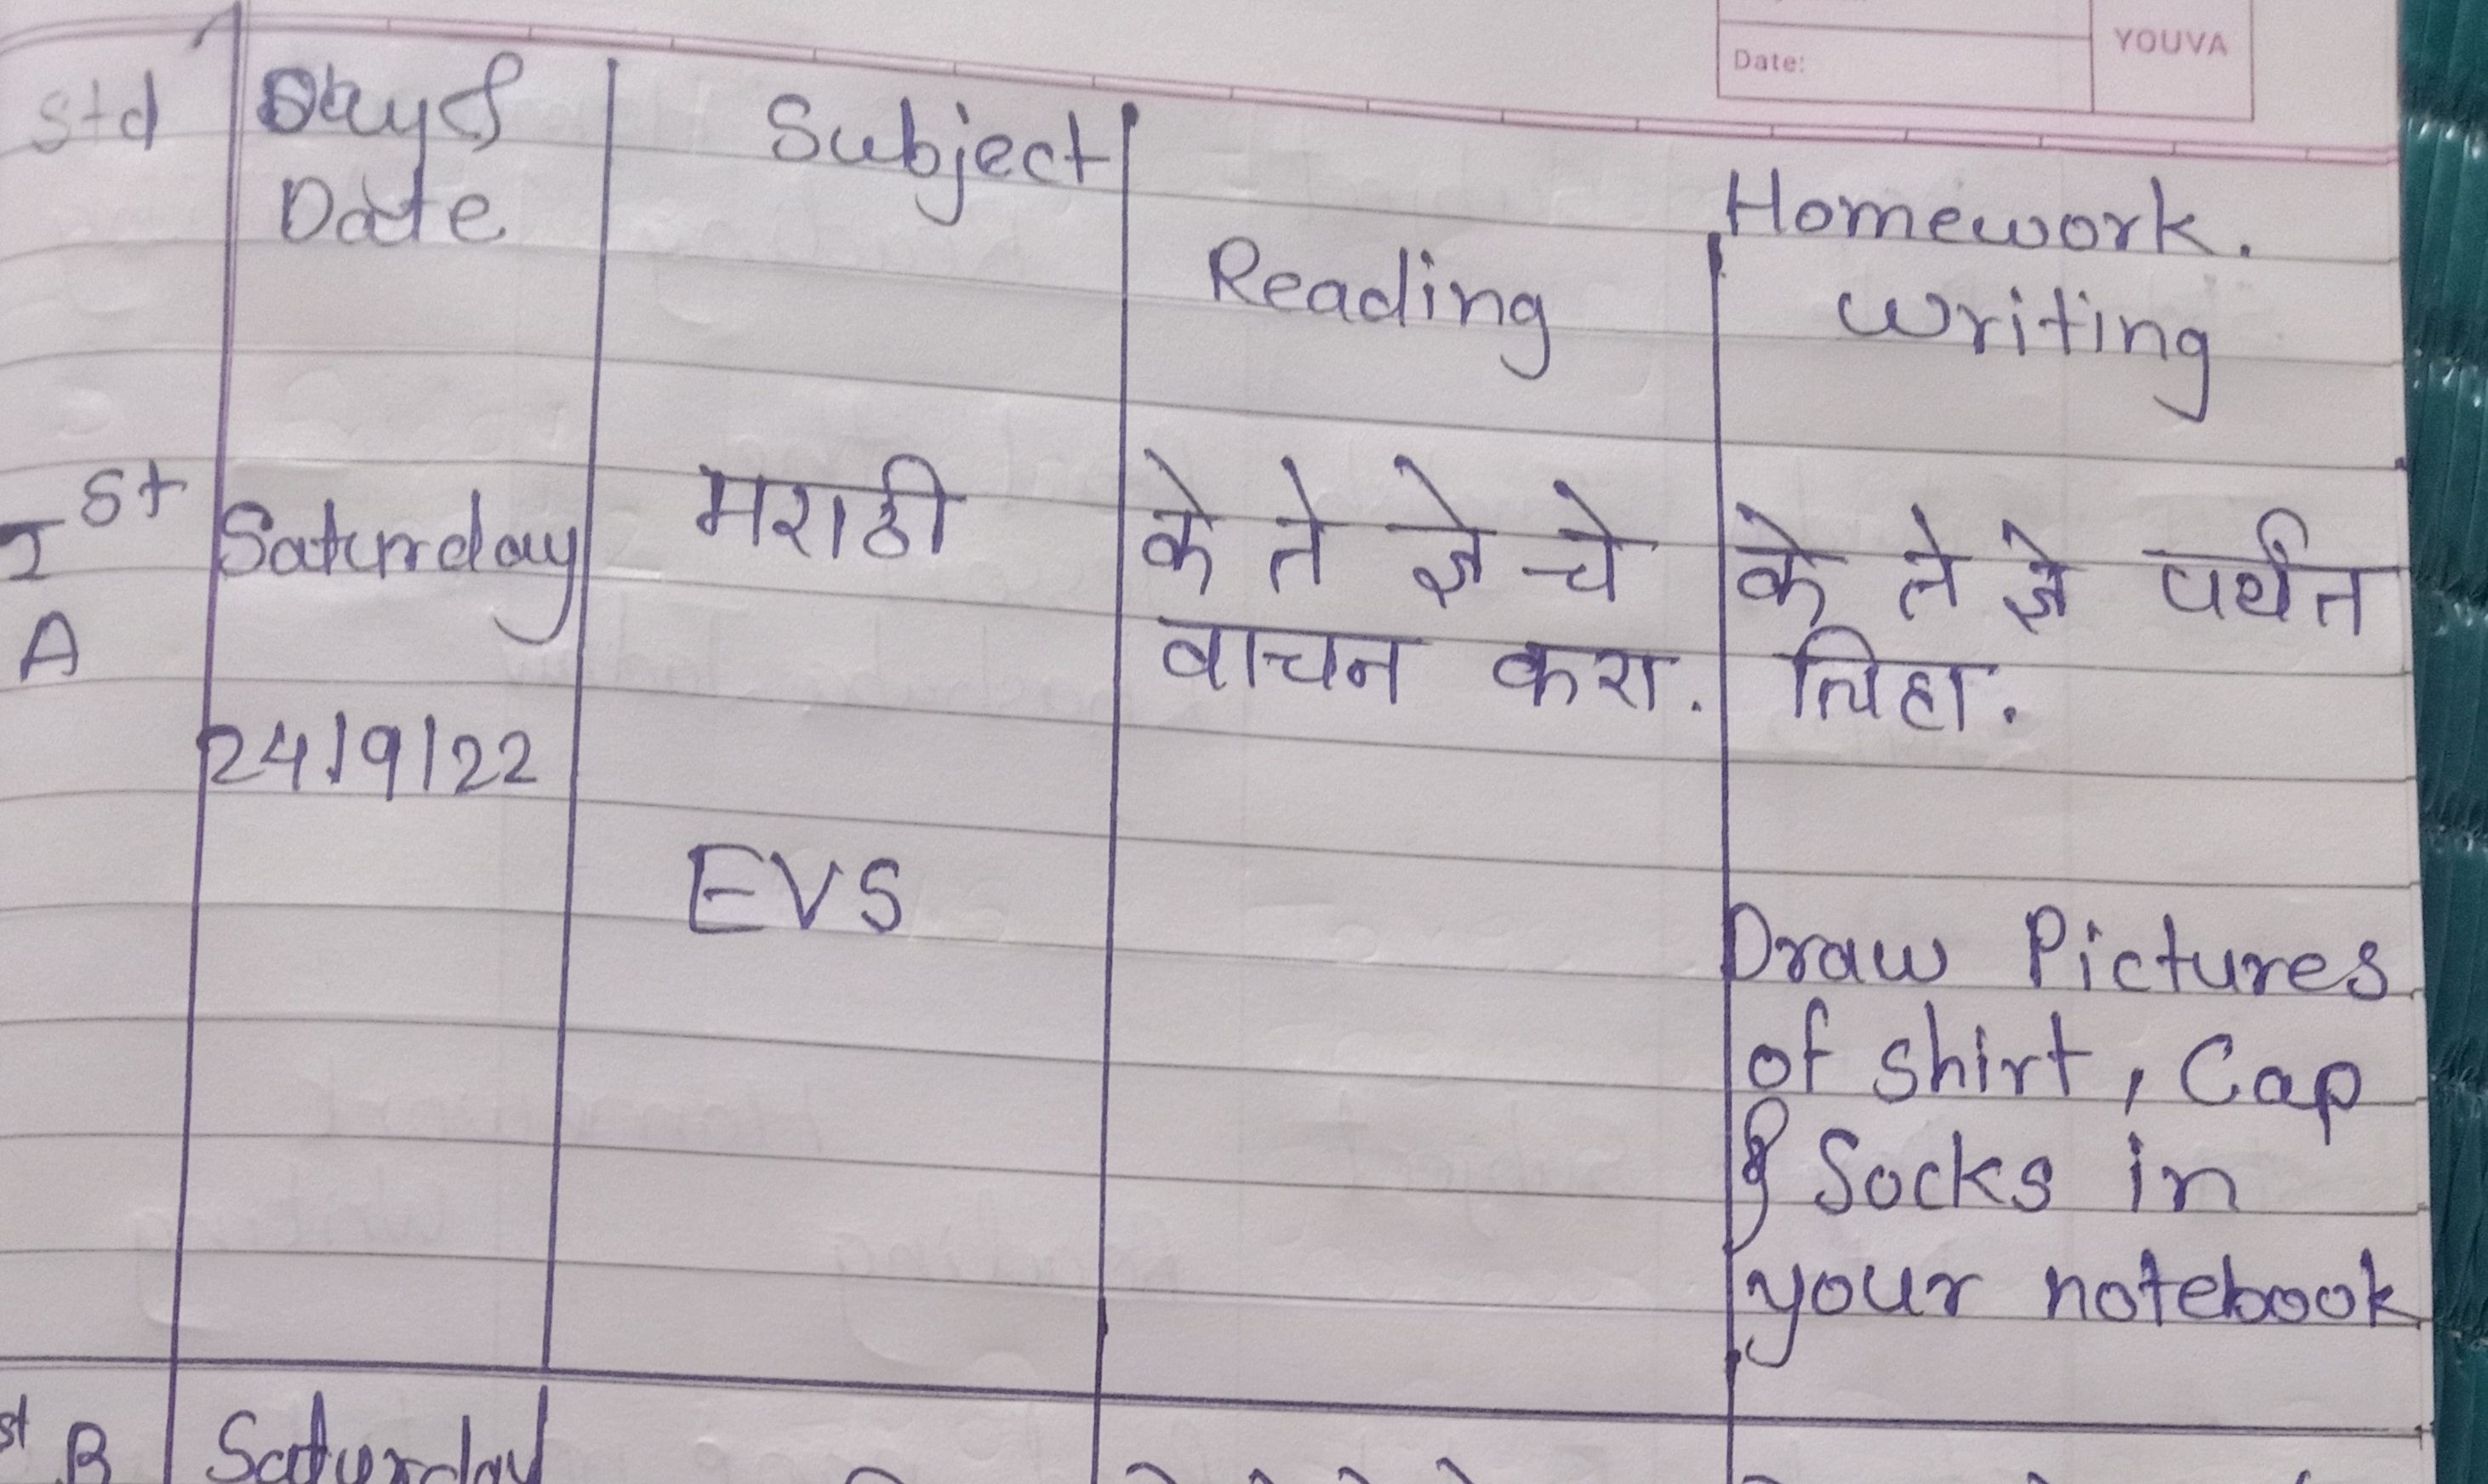 YOUVA
Date:
Std Day & Subject
Date Homework.
Reading Writing
Ist Saturday मराठी के ते ज्ञे चे के ते ज्ञे पर्यंत
A वाचन करा. लिहा.
24/9/22
EVS
Draw Pictures
of shirt, Cap
& Socks in
your notebook
st B Saturday